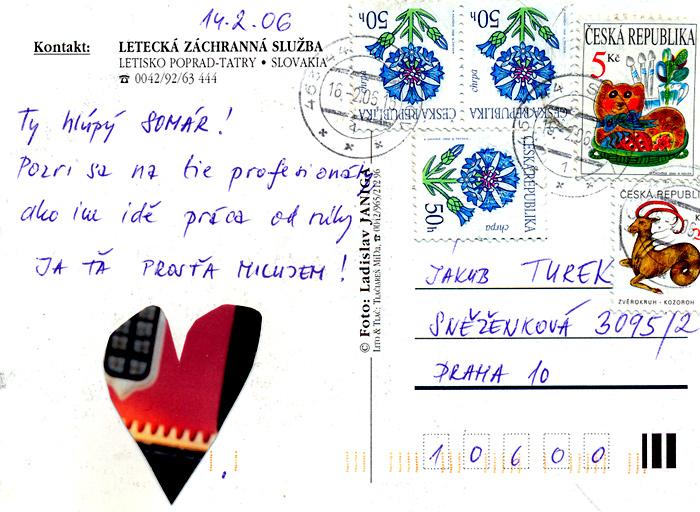 14.2.06
Kontakt: LETECKÁ ZÁCHRANNÁ SLUŽBA
LETISKO POPRAD-TATRY • SLOVAKIA
☎ 0042/92/63 444
Ty hlúpý SOMÁR!
Pozri sa na tie profesionály
ako im idě práca od ruky
JA ŤA PROSŤA MILUJEM!
© Foto: Ladislav JANIGA
LITO & TLAČ: TLAČIAREŇ MiDa, ☎ 0042/965/212 96
50h
chrpa
ČESKÁ REPUBLIKA
50h
chrpa
ČESKÁ REPUBLIKA
50h
chrpa
ČESKÁ REPUBLIKA
ČESKÁ REPUBLIKA
5 Kč
ČESKÁ REPUBLI
ZVĚROKRUH - KOZOROH
JAKUB TUREK
SNĚŽENKOVÁ 3095/2
PRAHA 10
10600